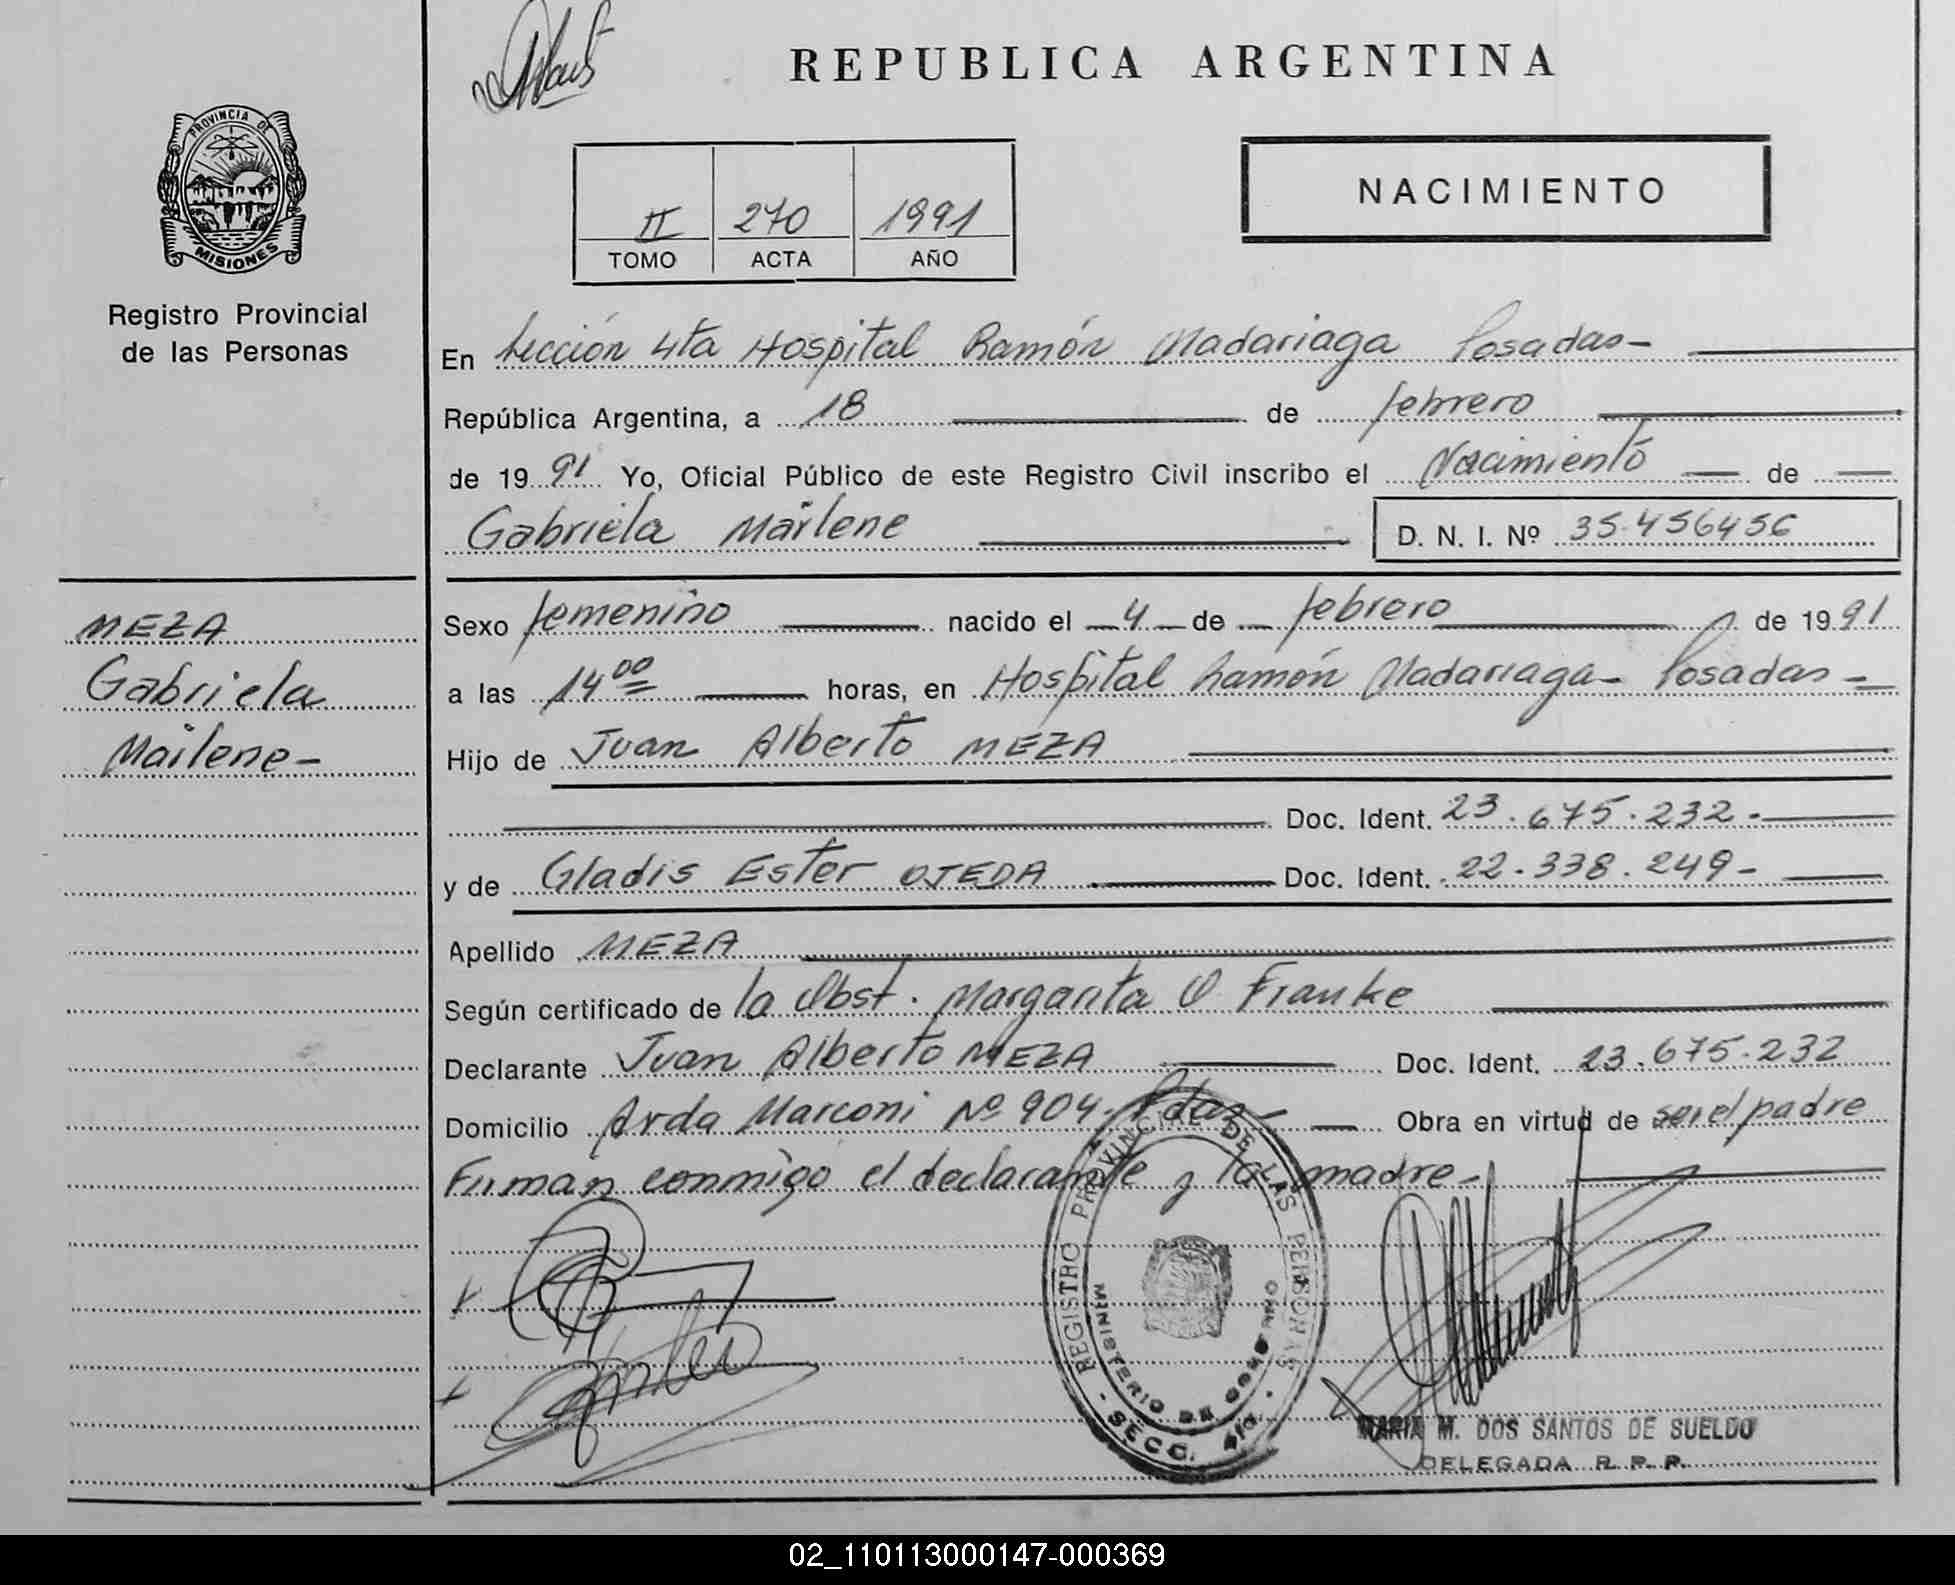 REPUBLICA ARGENTINA
PROVINCIA DE
MISIONES
Registro Provincial
de las Personas
II 270 1991
TOMO ACTA AÑO
NACIMIENTO
En Sección 4ta Hospital Ramón Madariaga Posadas-
República Argentina, a 18 de febrero
de 1991 Yo, Oficial Público de este Registro Civil inscribo el Nacimiento de
Gabriela Mailene D. N. I. Nº 35.456456
MEZA
Gabriela
Mailene-
Sexo femenino nacido el 4 de febrero de 1991
a las 14 00 horas, en Hospital Ramón Madariaga- Posadas-
Hijo de Juan Alberto MEZA
Doc. Ident. 23.675.232-
y de Gladis Ester OJEDA Doc. Ident. 22.338.249-
Apellido MEZA
Según certificado de la Obst. Margarita O Franke
Declarante Juan Alberto MEZA Doc. Ident. 23.675.232
Domicilio Avda Marconi Nº 904- Pdas- Obra en virtud de ser el padre
Firman conmigo el declarante y la madre-
REGISTRO PROVINCIAL DE LAS PERSONAS
MINISTERIO DE GOBIERNO
- SECC. 4ta. -
MARIA M. DOS SANTOS DE SUELDO
DELEGADA R. P. P.
02_110113000147-000369